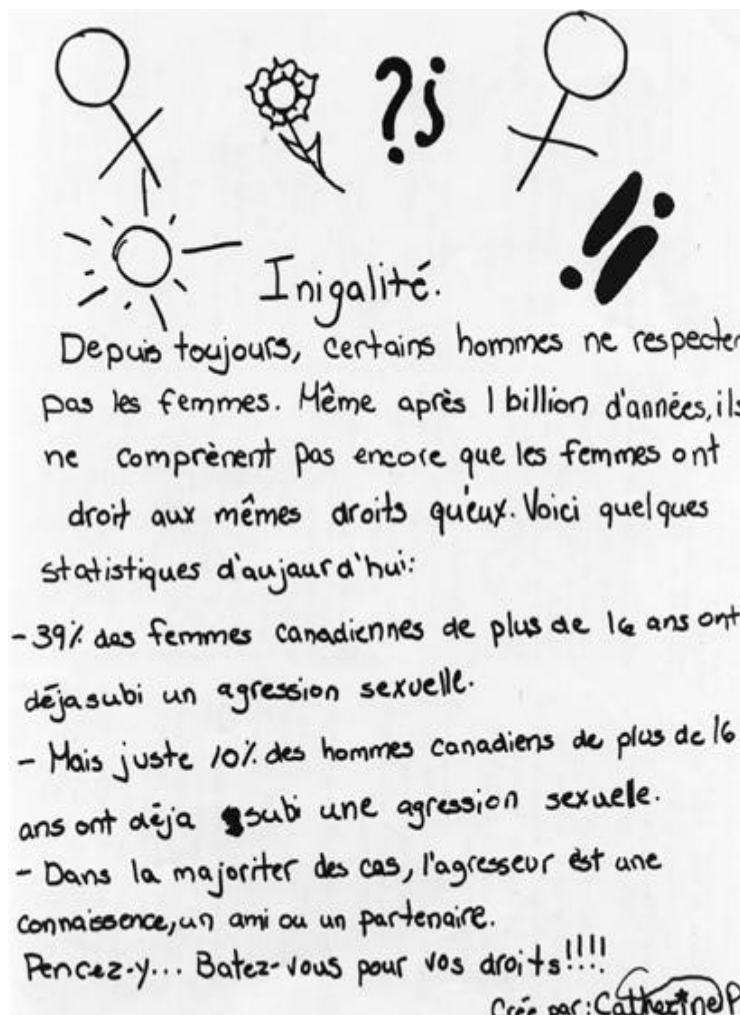 ?¿
!¡
Inigalité.
Depuis toujours, certains hommes ne respecten
pas les femmes. Même après 1 billion d'années, ils
ne comprènent pas encore que les femmes ont
droit aux mêmes droits qu'eux. Voici quelques
statistiques d'aujaurd'hui:
-39% des femmes canadiennes de plus de 16 ans ont
déja subi un agression sexuelle.
- Mais juste 10% des hommes canadiens de plus de 16
ans ont déja subi une agression sexuele.
- Dans la majoriter des cas, l'agresseur est une
connaissence, un ami ou un partenaire.
Pencez-y... Batez-vous pour vos droits!!!!
Crée par: Catherine P